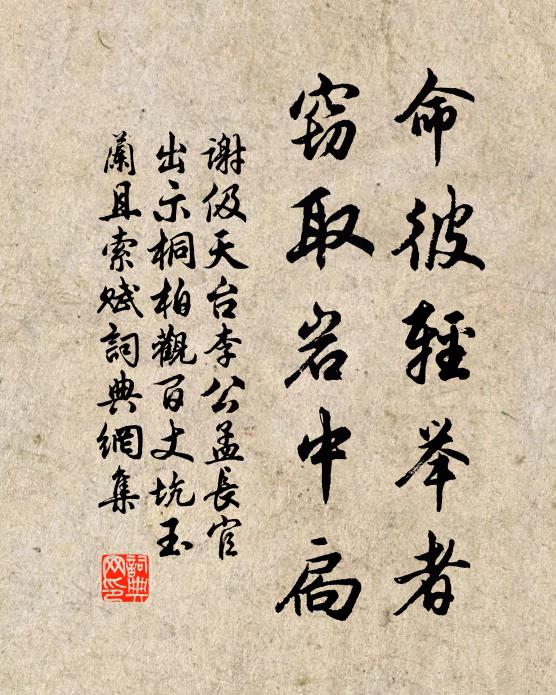 命彼輕举者
窃取岩中扃
谢伋天台李公孟長官
出示桐柏觀百丈坑玉
蘭且索赋詞典網集
詞典
网印